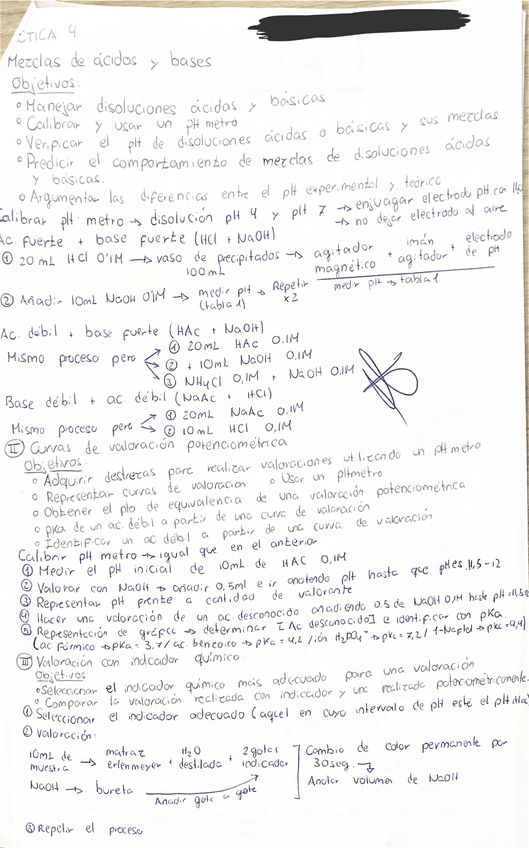 CTICA 4
Mezclas de ácidos y bases
Objetivos:
° Manejar disoluciones ácidas y básicas
° Calibrar y usar un pH metro
° Verificar el pH de disoluciones ácidas o básicas y sus mezclas.
° Predicir el comportamiento de mezclas de disoluciones ácidas
y básicas.
° Argumentar las diferencias entre el pH experimental y teórico
Calibrar pH metro → disolución pH 4 y pH 7 → enjuagar electrodo pH con H₂O
→ no dejar electrodo al aire
Ac. fuerte + base fuerte (HCl + NaOH)
① 20 mL HCl 0'1M → vaso de precipitados → agitador magnético + imán agitador + electrodo de pH
100 mL
medir pH → tabla 1
② Añadir 10mL NaOH 0'1M → medir pH → Repetir
(tabla 1) x2
Ac. débil + base fuerte (HAc + NaOH)
Mismo proceso pero
① 20mL HAc 0,1M
② + 10mL NaOH 0.1M
③ NH₄Cl 0,1M + NaOH 0.1M
Base débil + ac débil (NaAc + HCl)
Mismo proceso pero
① 20mL NaAc 0,1M
② 10mL HCl 0,1M
II Curvas de valoración potenciométrica
Objetivos:
° Adquirir destrezas para realizar valoraciones utilizando un pH metro
° Representar curvas de valoración ° Usar un pHmetro
° Obtener el pto de equivalencia de una valoración potenciométrica
° pKa de un ac. débil a partir de una curva de valoración
° Identificar un ac débil a partir de una curva de valoración
Calibrir pH metro → igual que en el anterior
① Medir el pH inicial de 10mL de HAC 0,1M
② Valorar con NaOH → añadir 0,5ml e ir anotando pH hasta que pH es 11,5-12
③ Representar pH frente a cantidad de valorante
④ Hacer una valoración de un ac. desconocido añadiendo 0,5 de NaOH 0,1M hasta pH=11,5
⑤ Representación de gráfica → determinar [Ac desconocido] e identificar con pKa
(ac. fórmico → pKa = 3,7 / ac. benzoico → pKa = 4,2 / ión H₂PO₄⁻ → pKa = 7,2 / 1-Naftol → pKa = 9,4)
III Valoración con indicador químico.
Objetivos:
° Seleccionar el indicador químico más adecuado para una valoración
° Comparar la valoración realizada con indicador y una realizada potenciométricamente.
① Seleccionar el indicador adecuado (aquel en cuyo intervalo de pH esté el pH
② Valoración:
10mL de muestra → matraz erlenmeyer + H₂O destilada + 2 gotas indicador
Cambio de color permanente por
30 seg.
Anotar volumen de NaOH
NaOH → bureta
Añadir gota a gota
③ Repetir el proceso